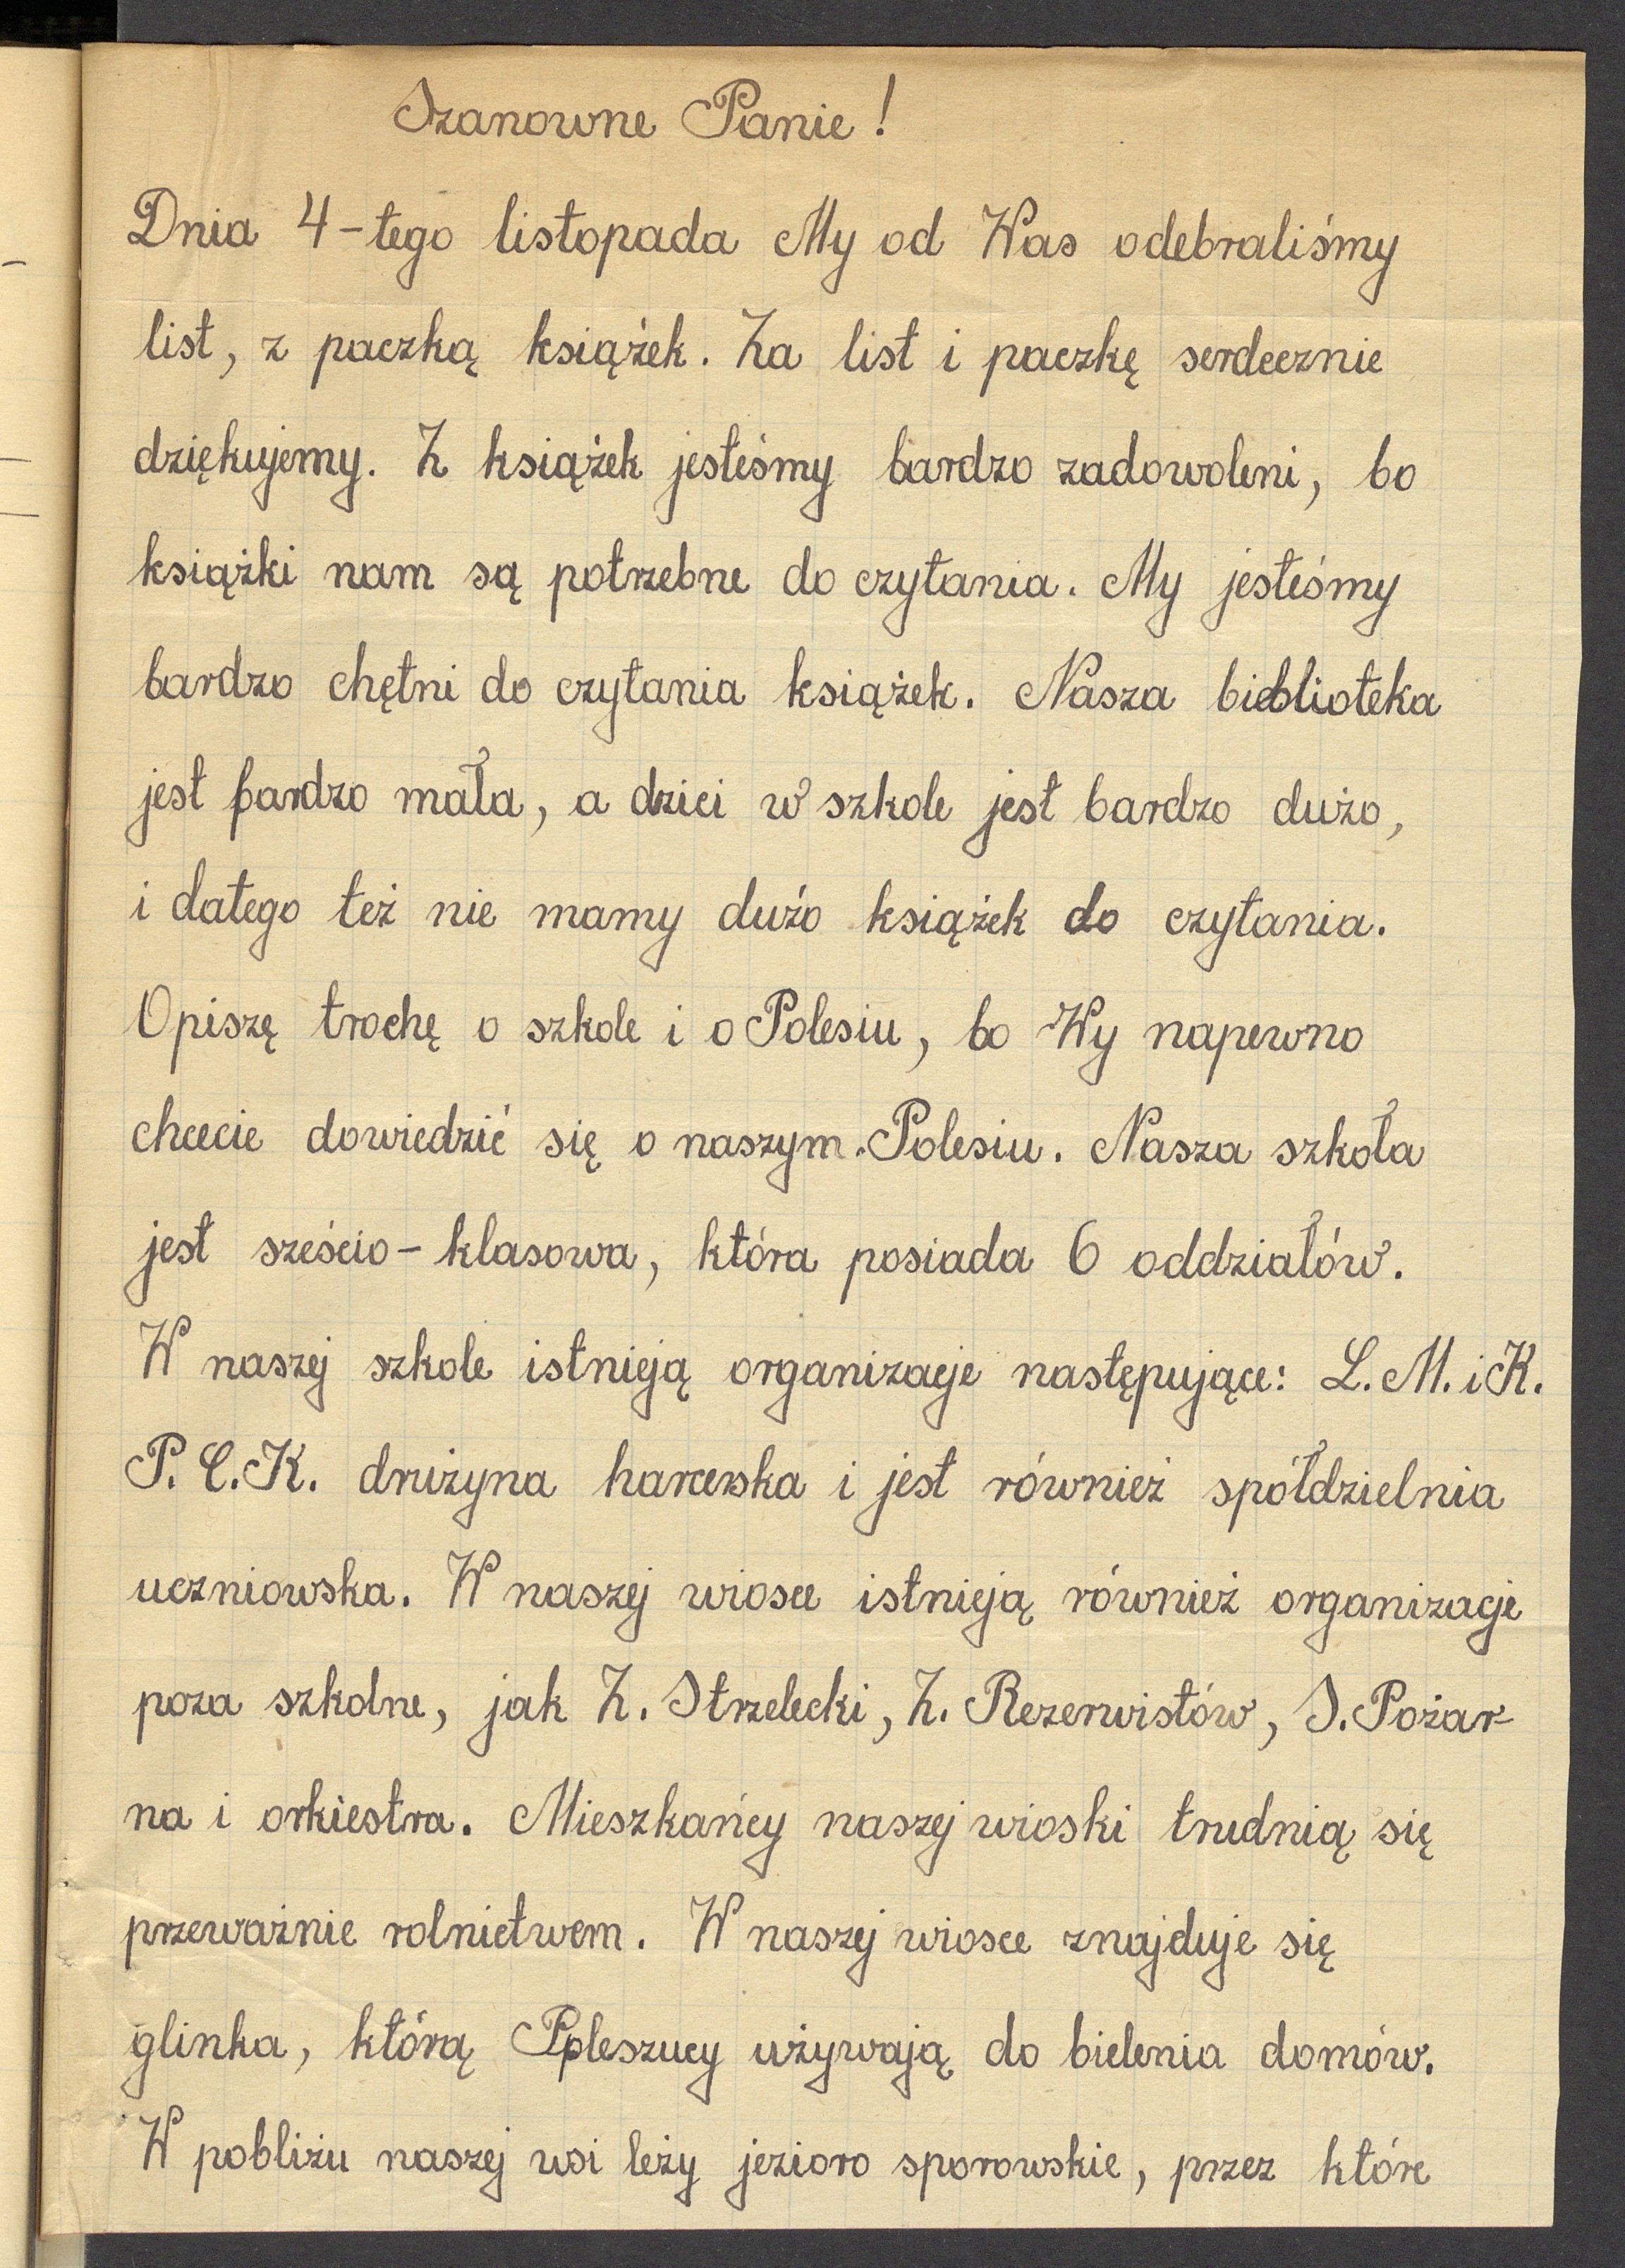 Szanowne Panie!
Dnia 4-tego listopada My od Was odebraliśmy
list, z paczką książek. Za list i paczkę serdecznie
dziękujemy. Z książek jesteśmy bardzo zadowoleni, bo
książki nam są potrzebne do czytania. My jesteśmy
bardzo chętni do czytania książek. Nasza bieblioteka
jest bardzo mała, a dzieci w szkole jest bardzo dużo,
i datego też nie mamy dużo książek do czytania.
Opiszę trochę o szkole i o Polesiu, bo Wy napewno
chcecie dowiedzić się o naszym Polesiu. Nasza szkoła
jest sześcio-klasowa, która posiada 6 oddziałów.
W naszej szkole istnieją organizacje następujące: L. M. i K.
P. C. K. drużyna harcerska i jest również spółdzielnia
uczniowska. W naszej wiosce istnieją również organizacje
poza szkolne, jak Z. Strzelecki, Z. Rezerwistów, S. Pożar-
na i orkiestra. Mieszkańcy naszej wioski trudnią się
przeważnie rolnictwem. W naszej wiosce znajduje się
glinka, którą Poleszucy używają do bielenia domów.
W pobliżu naszej wsi leży jezioro sporowskie, przez które